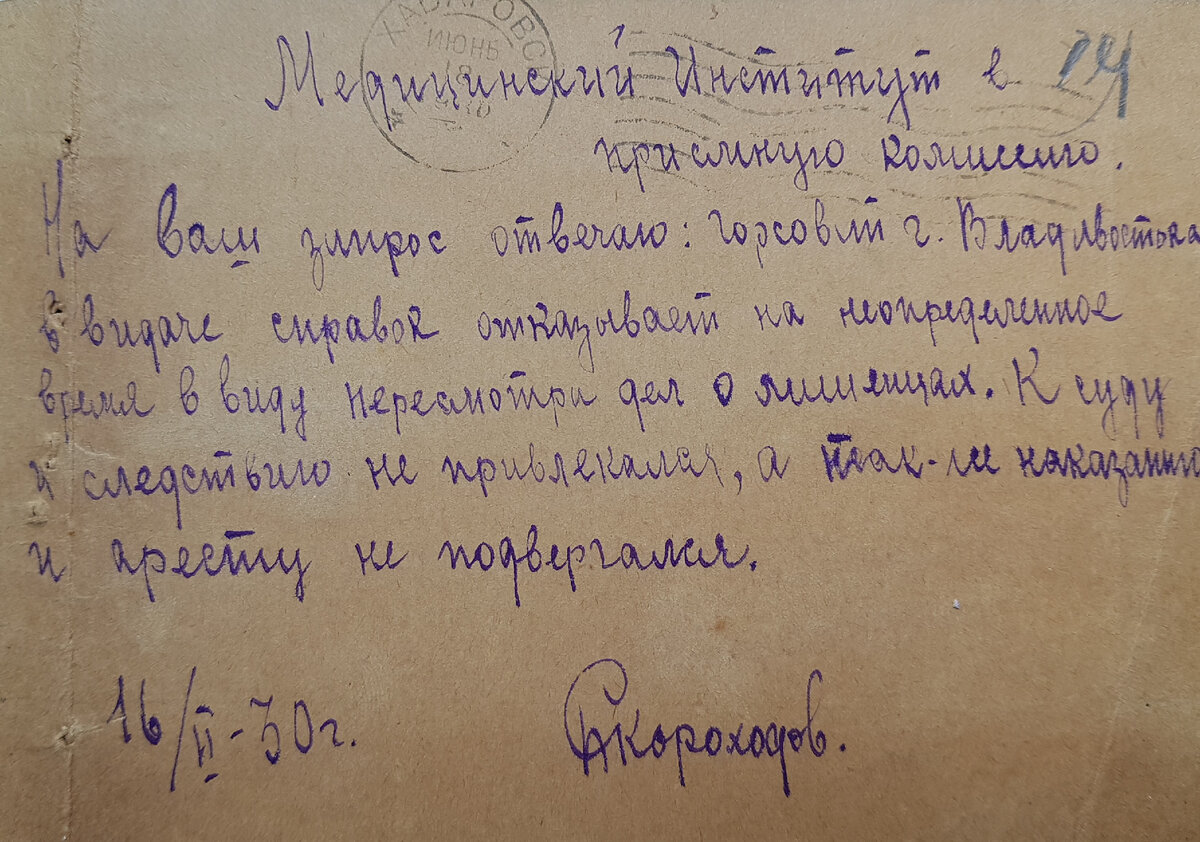 ХАБАРОВСК
ИЮНЬ
18
Медицинский Институт в 14
приемную комиссию.
На ваш запрос отвечаю: горсовет г. Владивостока
в видаче справок отказывает на неопределенное
время в виду пересмотра дел о лишенцах. К суду
и следствию не привлекался, а так-же наказанию
и аресту не подвергался.
16/II-30г.
Скороходов.